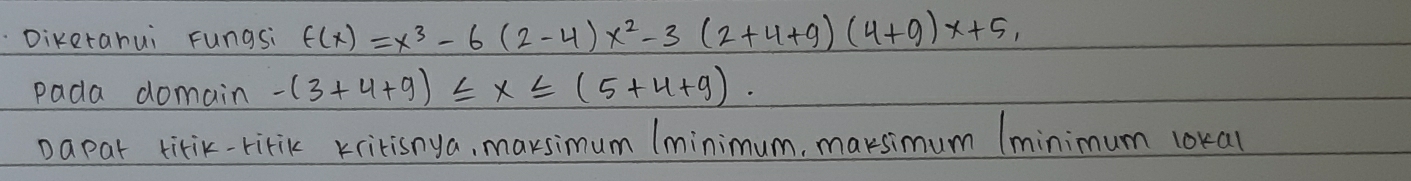 . Diketahui Fungsi f(x) = x³ - 6 (2-4) x² - 3 (2+4+9) (4+9) x + 5,
pada domain -(3+4+9) ≤ x ≤ (5+4+9).
Dapat titik-titik kritisnya, maksimum /minimum, maksimum /minimum lokal